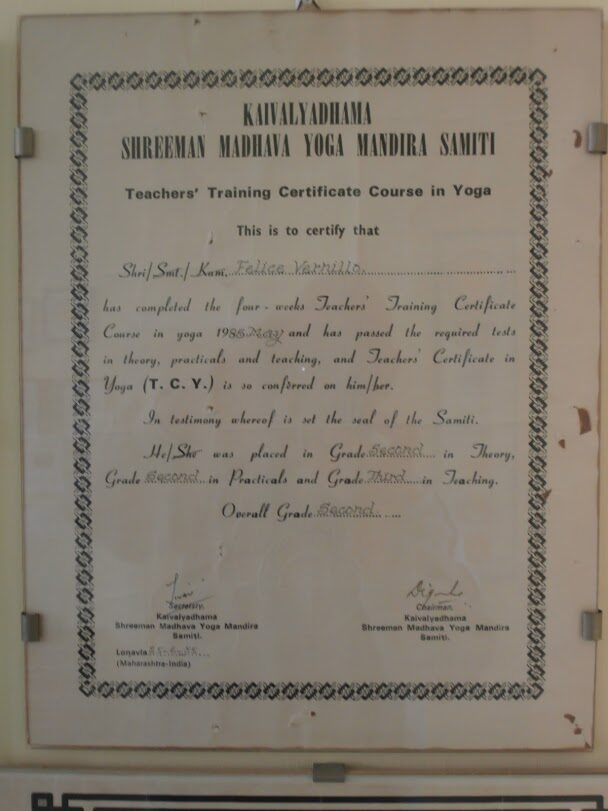 KAIVALYADHAMA
SHREEMAN MADHAVA YOGA MANDIRA SAMITI
Teachers' Training Certificate Course in Yoga
This is to certify that
Shri/Smt./Kum. Felice Varnillo
has completed the four-weeks Teachers' Training Certificate
Course in yoga 1985 May and has passed the required tests
in theory, practicals and teaching, and Teachers' Certificate in
Yoga (T. C. Y.) is so conferred on him/her.
In testimony whereof is set the seal of the Samiti.
He/She was placed in Grade Second in Theory,
Grade Second in Practicals and Grade Third in Teaching.
Overall Grade Second
Secretary.
Kaivalyadhama
Shreeman Madhava Yoga Mandira
Samiti.
Chairman.
Kaivalyadhama
Shreeman Madhava Yoga Mandira
Samiti.
Lonavla
(Maharashtra-India)